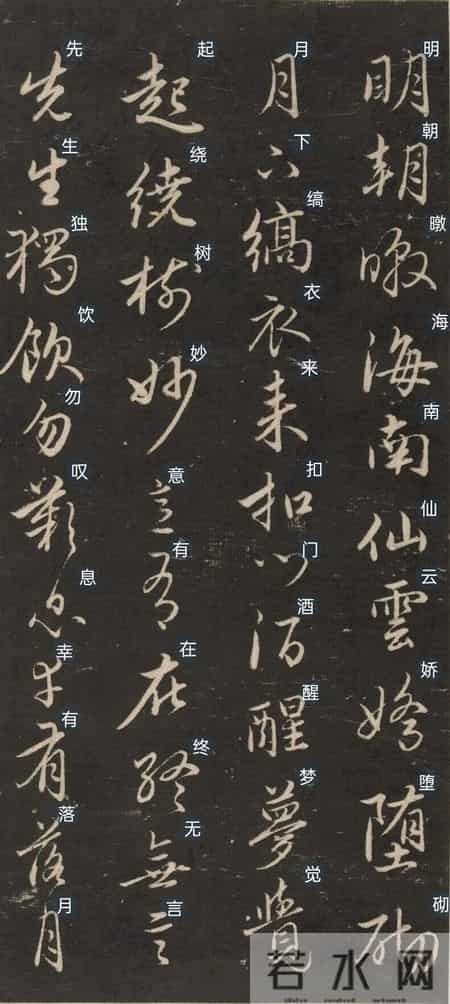 明朝暾海南仙雲嬌堕砌
明朝暾海南仙云娇堕砌
月下縞衣来扣門酒醒夢覺
月下缟衣来扣门酒醒梦觉
起繞樹妙意有在終無言
起绕树妙意有在终无言
先生獨飲勿歎息幸有落月
先生独饮勿叹息幸有落月
若水网